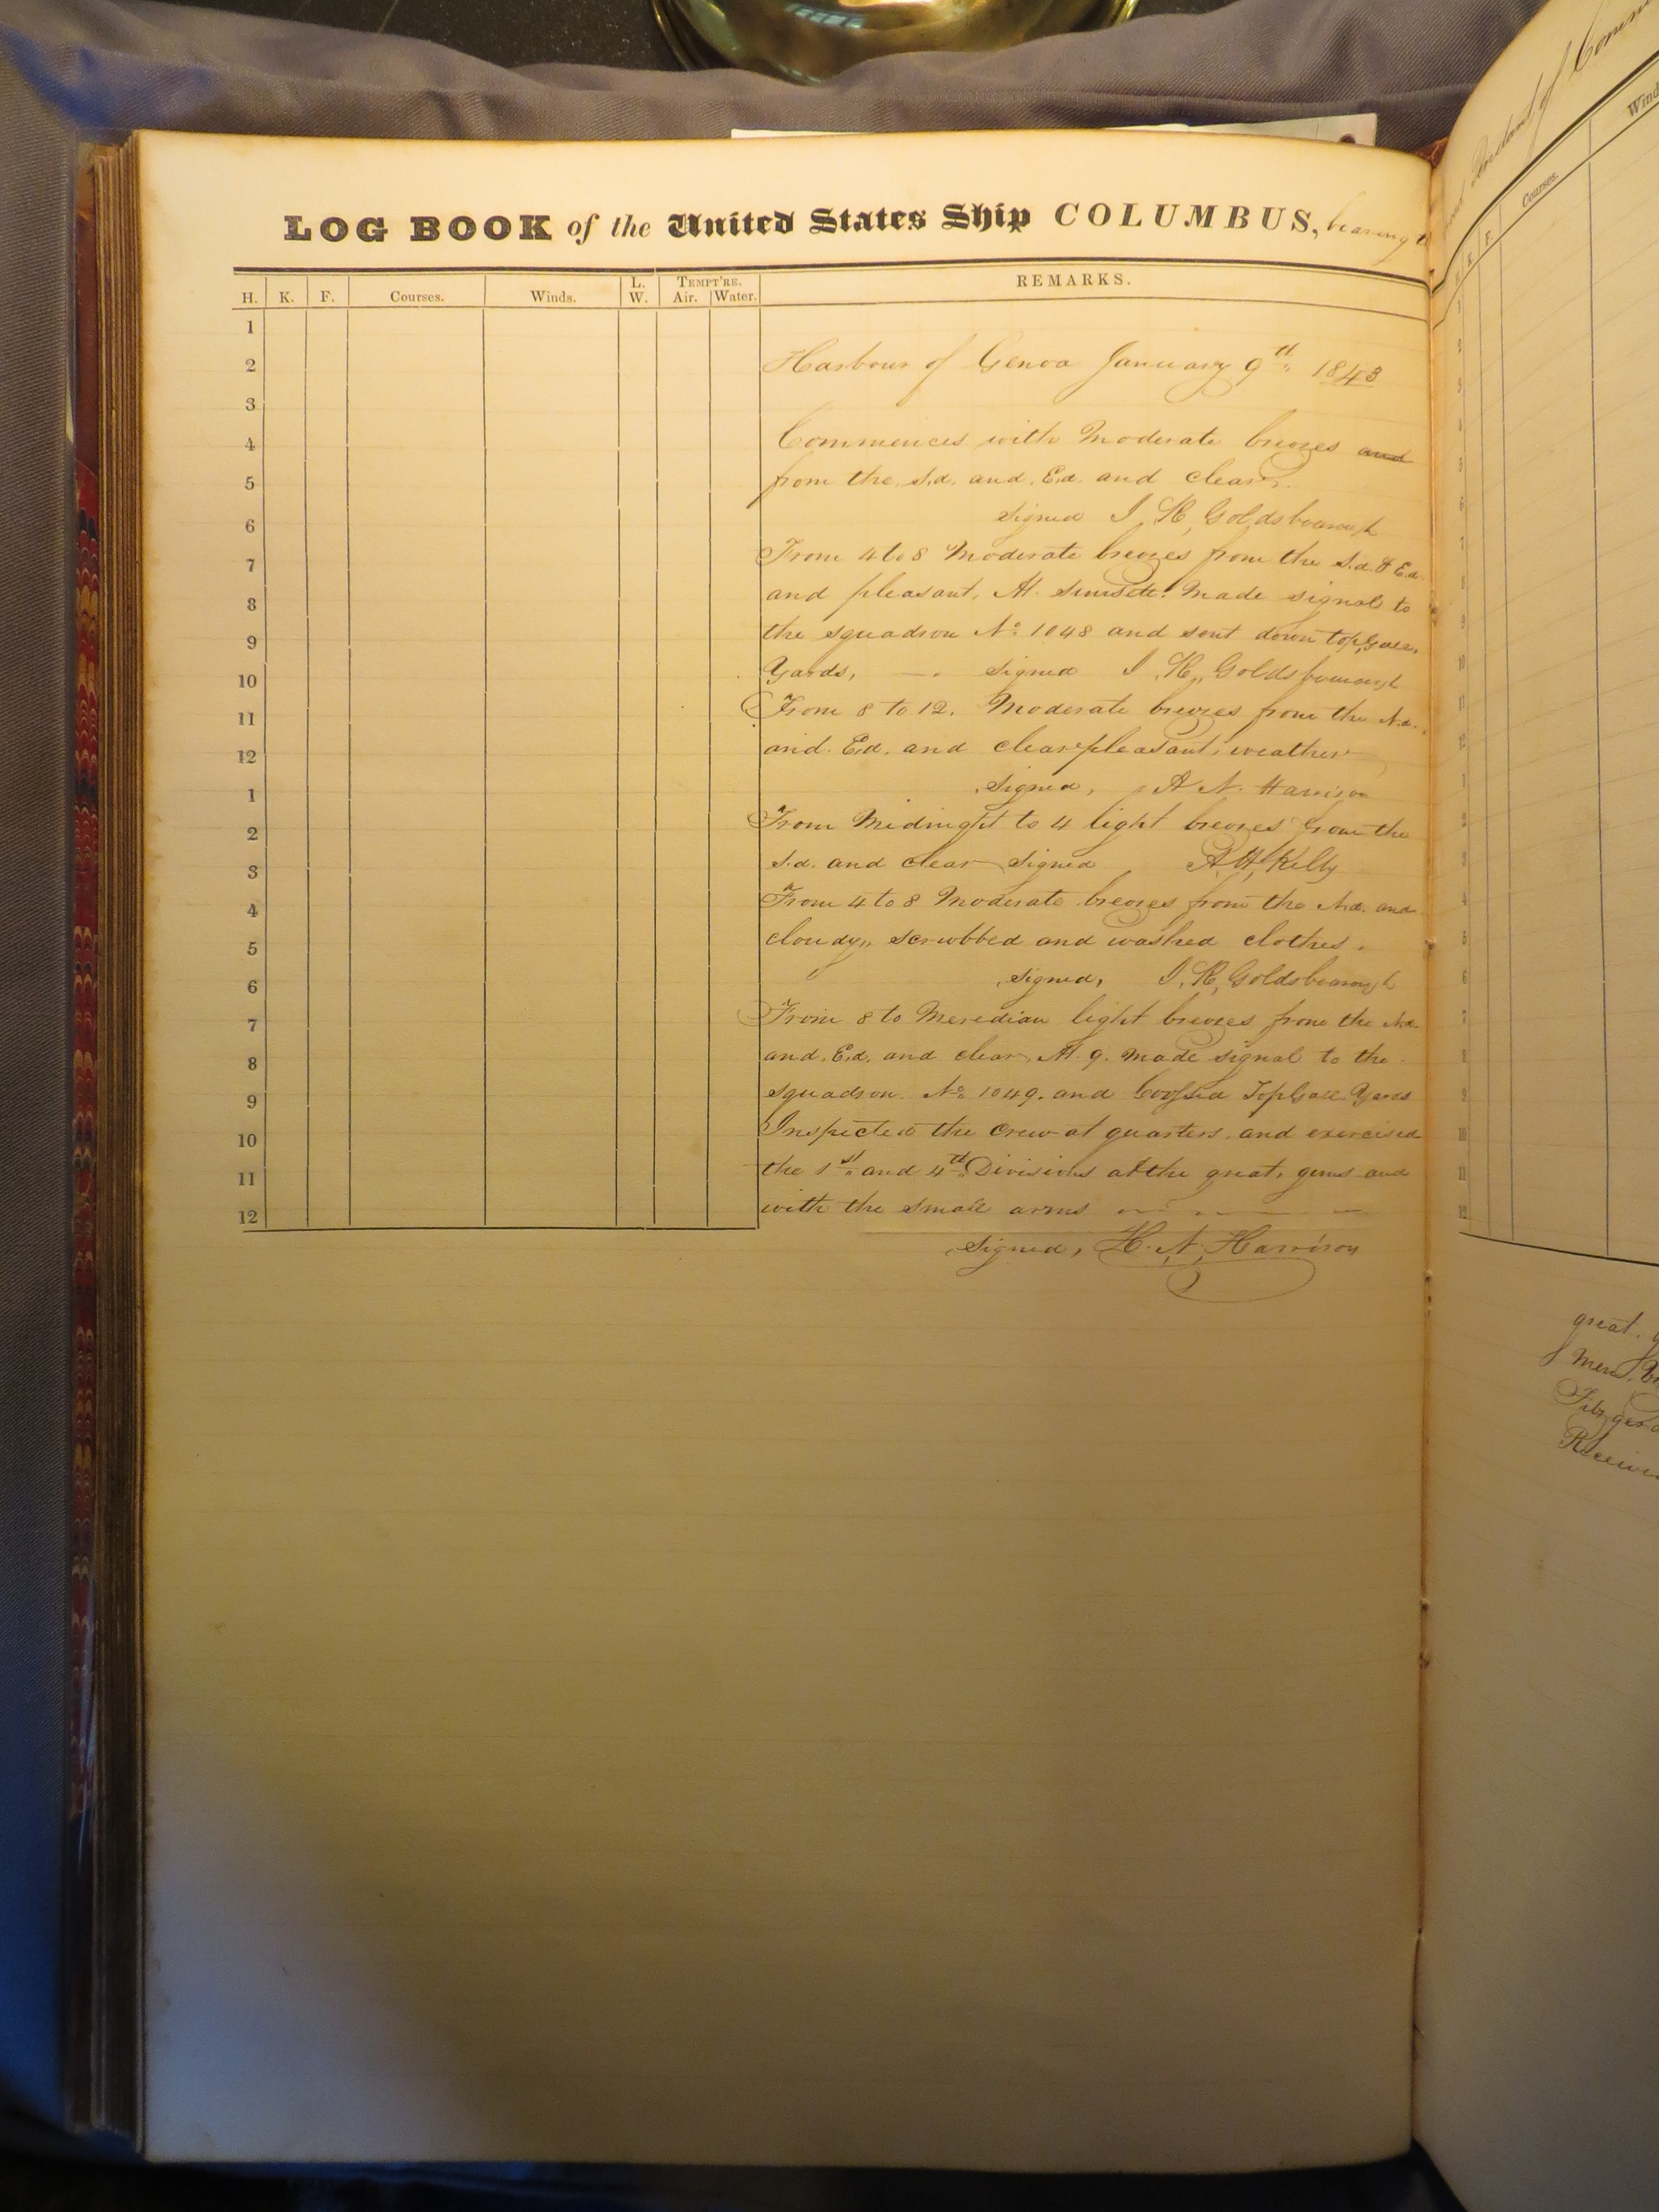 LOG BOOK of the United States Ship COLUMBUS, bearing t
H. K. F. Courses. Winds. L. W. TEMPT'RE. Air. Water. REMARKS.
1
2 Harbour of Genoa January 9th 1843
3
4 Commences with Moderate breezes and
5 from the S.d. and E.d. and clear.
6 signed I. R. Goldsborough
7 From 4 to 8 Moderate breezes from the S.d. & E.d.
8 and pleasant, At sunsett. Made signal to
9 the squadron No 1048 and sent down topGall.
10 Yards, signed I. R. Goldsborough
11 From 8 to 12. Moderate breezes from the N.d.
12 and E.d. and clear pleasant weather
1 signed, N. Harrison
2 From Midnight to 4 light breezes from the
3 S.d. and clear signed Kelly
4 From 4 to 8 Moderate breezes from the N.d. and
5 cloudy, scrubbed and washed clothes.
6 signed, I. R. Goldsborough
7 From 8 to Meredian light breezes from the N.d.
8 and E.d. and clear, At 9. Made signal to the
9 squadron No 1049. and Crossed TopGall Yards
10 Inspected the Crew at quarters. and exercised
11 the 1st and 4th Divisions at the great, guns and
12 with the small arms
signed, H. N. Harrison
of Comm
Courses.
Wind
great. g
men
Fitzgera
Receiv